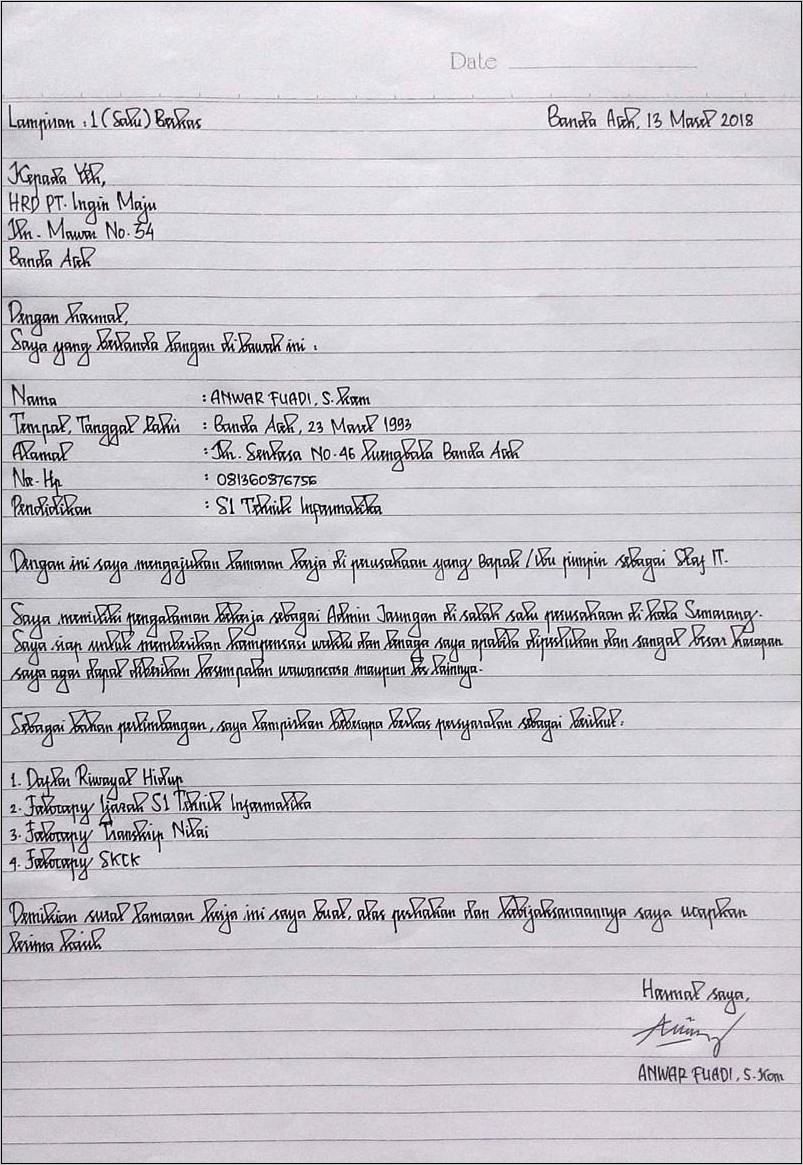 Date
Lampiran : 1 (Satu) Berkas Banda Aceh, 13 Maret 2018
Kepada Yth,
HRD PT. Ingin Maju
Jln. Mawar No. 54
Banda Aceh
Dengan hormat,
Saya yang bertanda tangan di bawah ini :
Nama : ANWAR FUADI, S.Kom
Tempat, Tanggal Lahir : Banda Aceh, 23 Maret 1993
Alamat : Jln. Sentosa No. 46 Luengbata Banda Aceh
No. Hp : 081360876756
Pendidikan : S1 Teknik Informatika
Dengan ini saya mengajukan lamaran kerja di perusahaan yang Bapak / Ibu pimpin sebagai Staf IT.
Saya memiliki pengalaman bekerja sebagai Admin Jaringan di salah satu perusahaan di kota Semarang.
Saya siap untuk memberikan kompensasi waktu dan tenaga saya apabila diperlukan dan sangat besar harapan
saya agar dapat diberikan kesempatan wawancara maupun tes lainnya.
Sebagai bahan pertimbangan, saya lampirkan beberapa berkas persyaratan sebagai berikut :
1. Daftar Riwayat Hidup
2. Fotocopy Ijazah S1 Teknik Informatika
3. Fotocopy Transkip Nilai
4. Fotocopy SKCK
Demikian surat lamaran kerja ini saya buat, atas perhatian dan kebijaksanaannya saya ucapkan
terima kasih
Hormat saya,
ANWAR FUADI, S.Kom